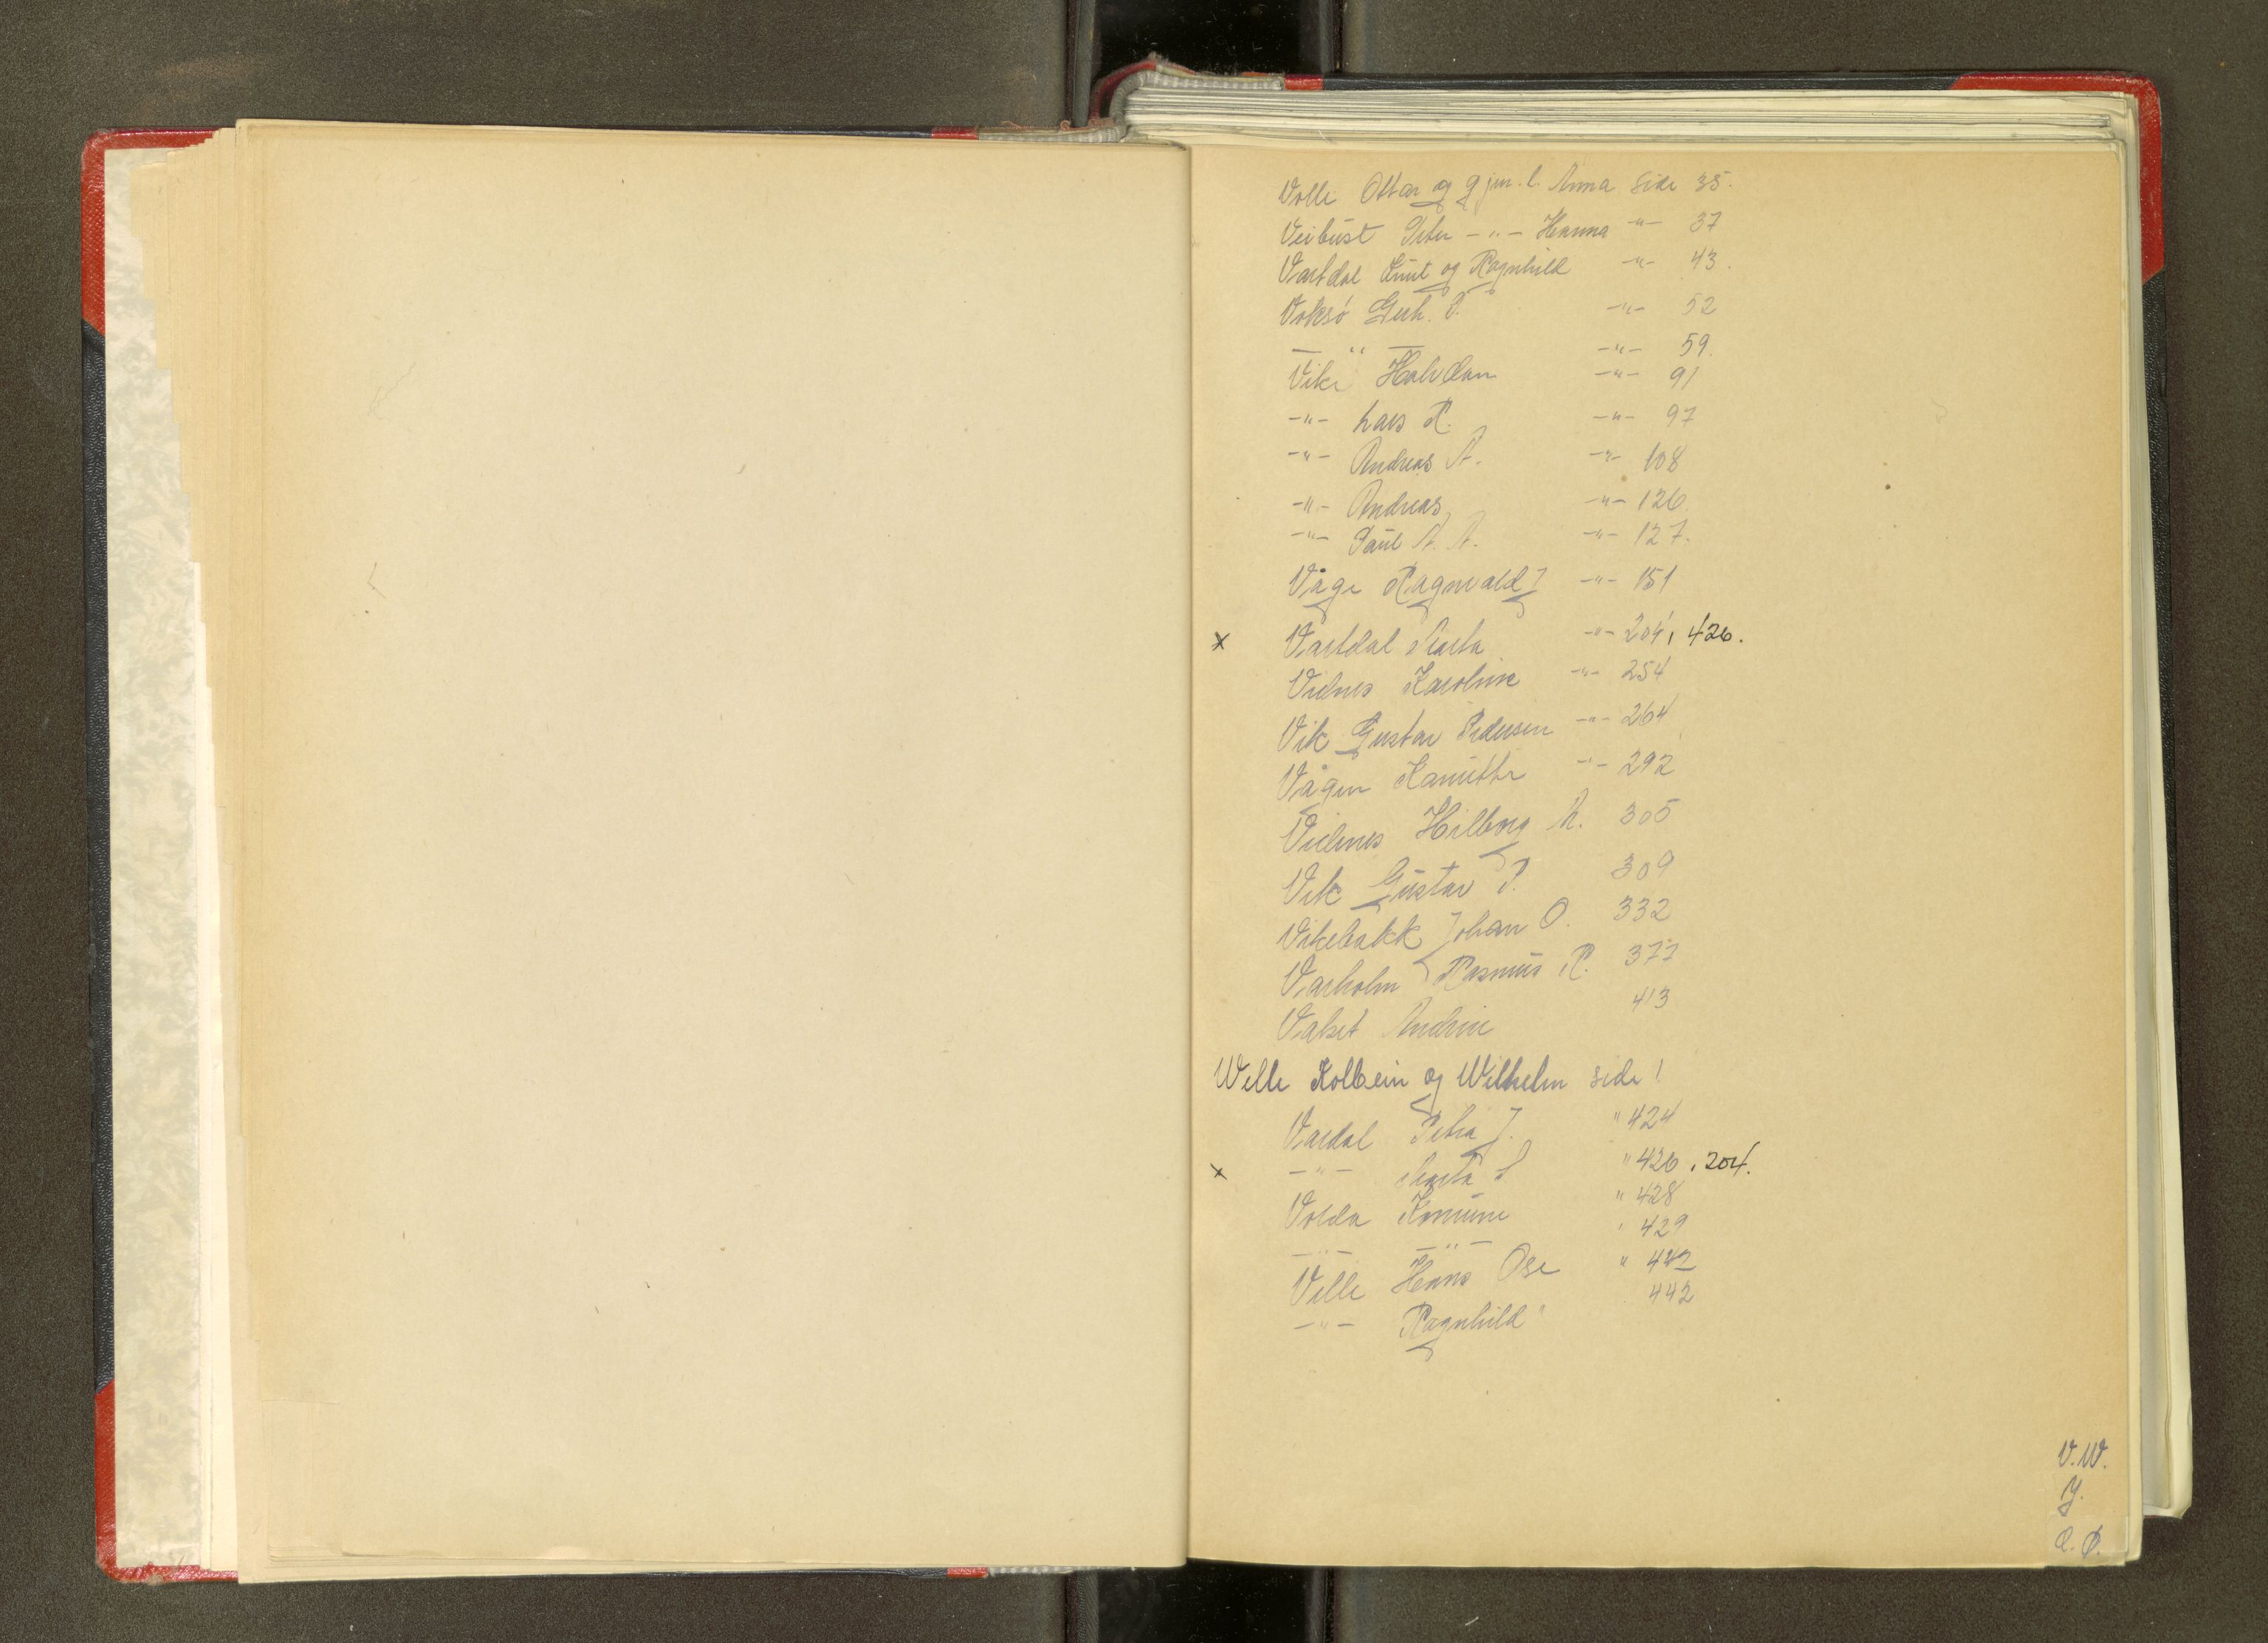 Volle Ottar og gjm. l. Anna side 35.
Veibust Peter -"- Hanna -"- 37
Vartdal Knut og Ragnhild -"- 43.
Voksø Gerh. P. -"- 52
-"- -"- 59.
Vike Halvdan -"- 91
-"- Lars R. -"- 97
-"- Andreas A. -"- 108
-"- Andreas -"- 126
-"- Paul A. A. -"- 127.
Våge Ragnvald J -"- 151
x Vartdal Marta -"- 204, 426.
Vidnes Karoline -"- 254
Vik Gustav Pedersen -"- 264
Vågen Kanutte -"- 292
Vidnes Hilborg M. 305
Vik Gustav P. 309
Vikebakk Johan O. 332
Varholm Rasmus R. 377
Valset Andrine 413
Welle Kolbein og Wilhelm side 1
Vardal Petra J. " 424
x -"- Marta S " 426, 204.
Volda Komune " 428
-"- -"- " 429
Velle Hans Ose " 442
-"- Ragnhild " 442
V. W.
Y.
Æ. Ø.